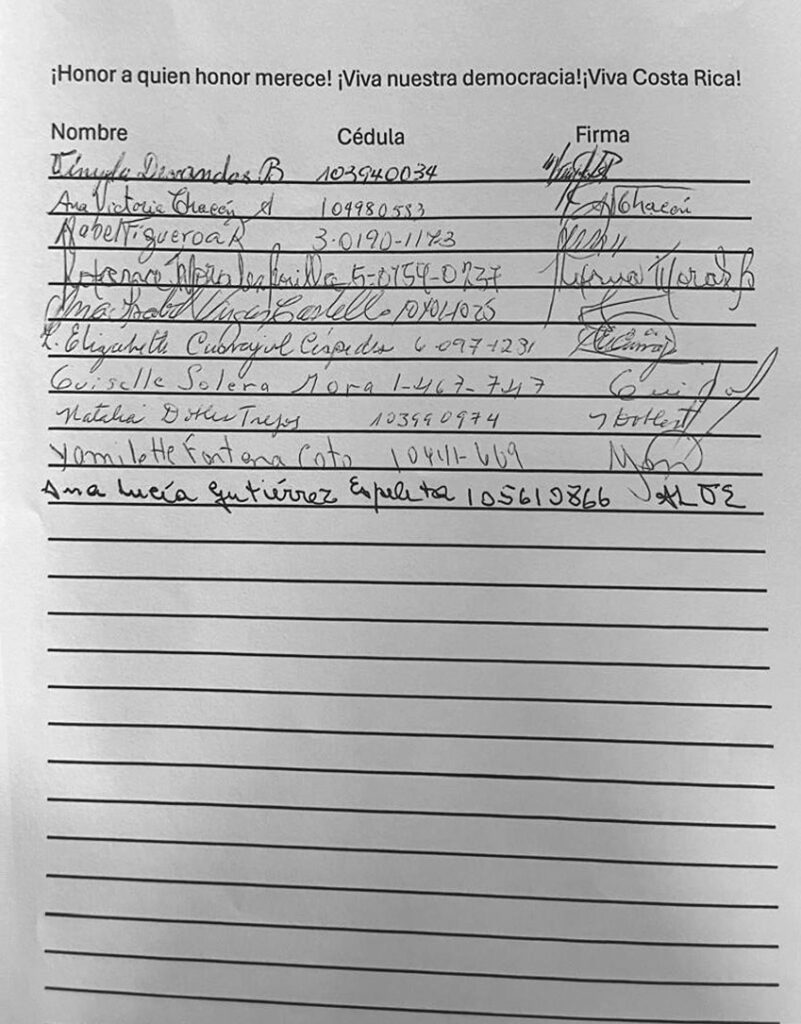 ¡Honor a quien honor merece! ¡Viva nuestra democracia!¡Viva Costa Rica!
Nombre Cédula Firma
Devandas B 103940034
Ana Victoria Chacón A 104980583 AVChacón
Mabel Figueroa R 3-0190-1173
Morales 5-0154-0737
Ana Isabel Vargas Castello
L. Elizabeth Carvajal Céspedes 6-097-1231
Guiselle Solera Mora 1-467-747
Natalia Dobles Trejos 103990974 NDoblesT
Yamilette Fontana Coto 10411-669
Ana Lucía Gutiérrez Espeleta 105610866 ALGE